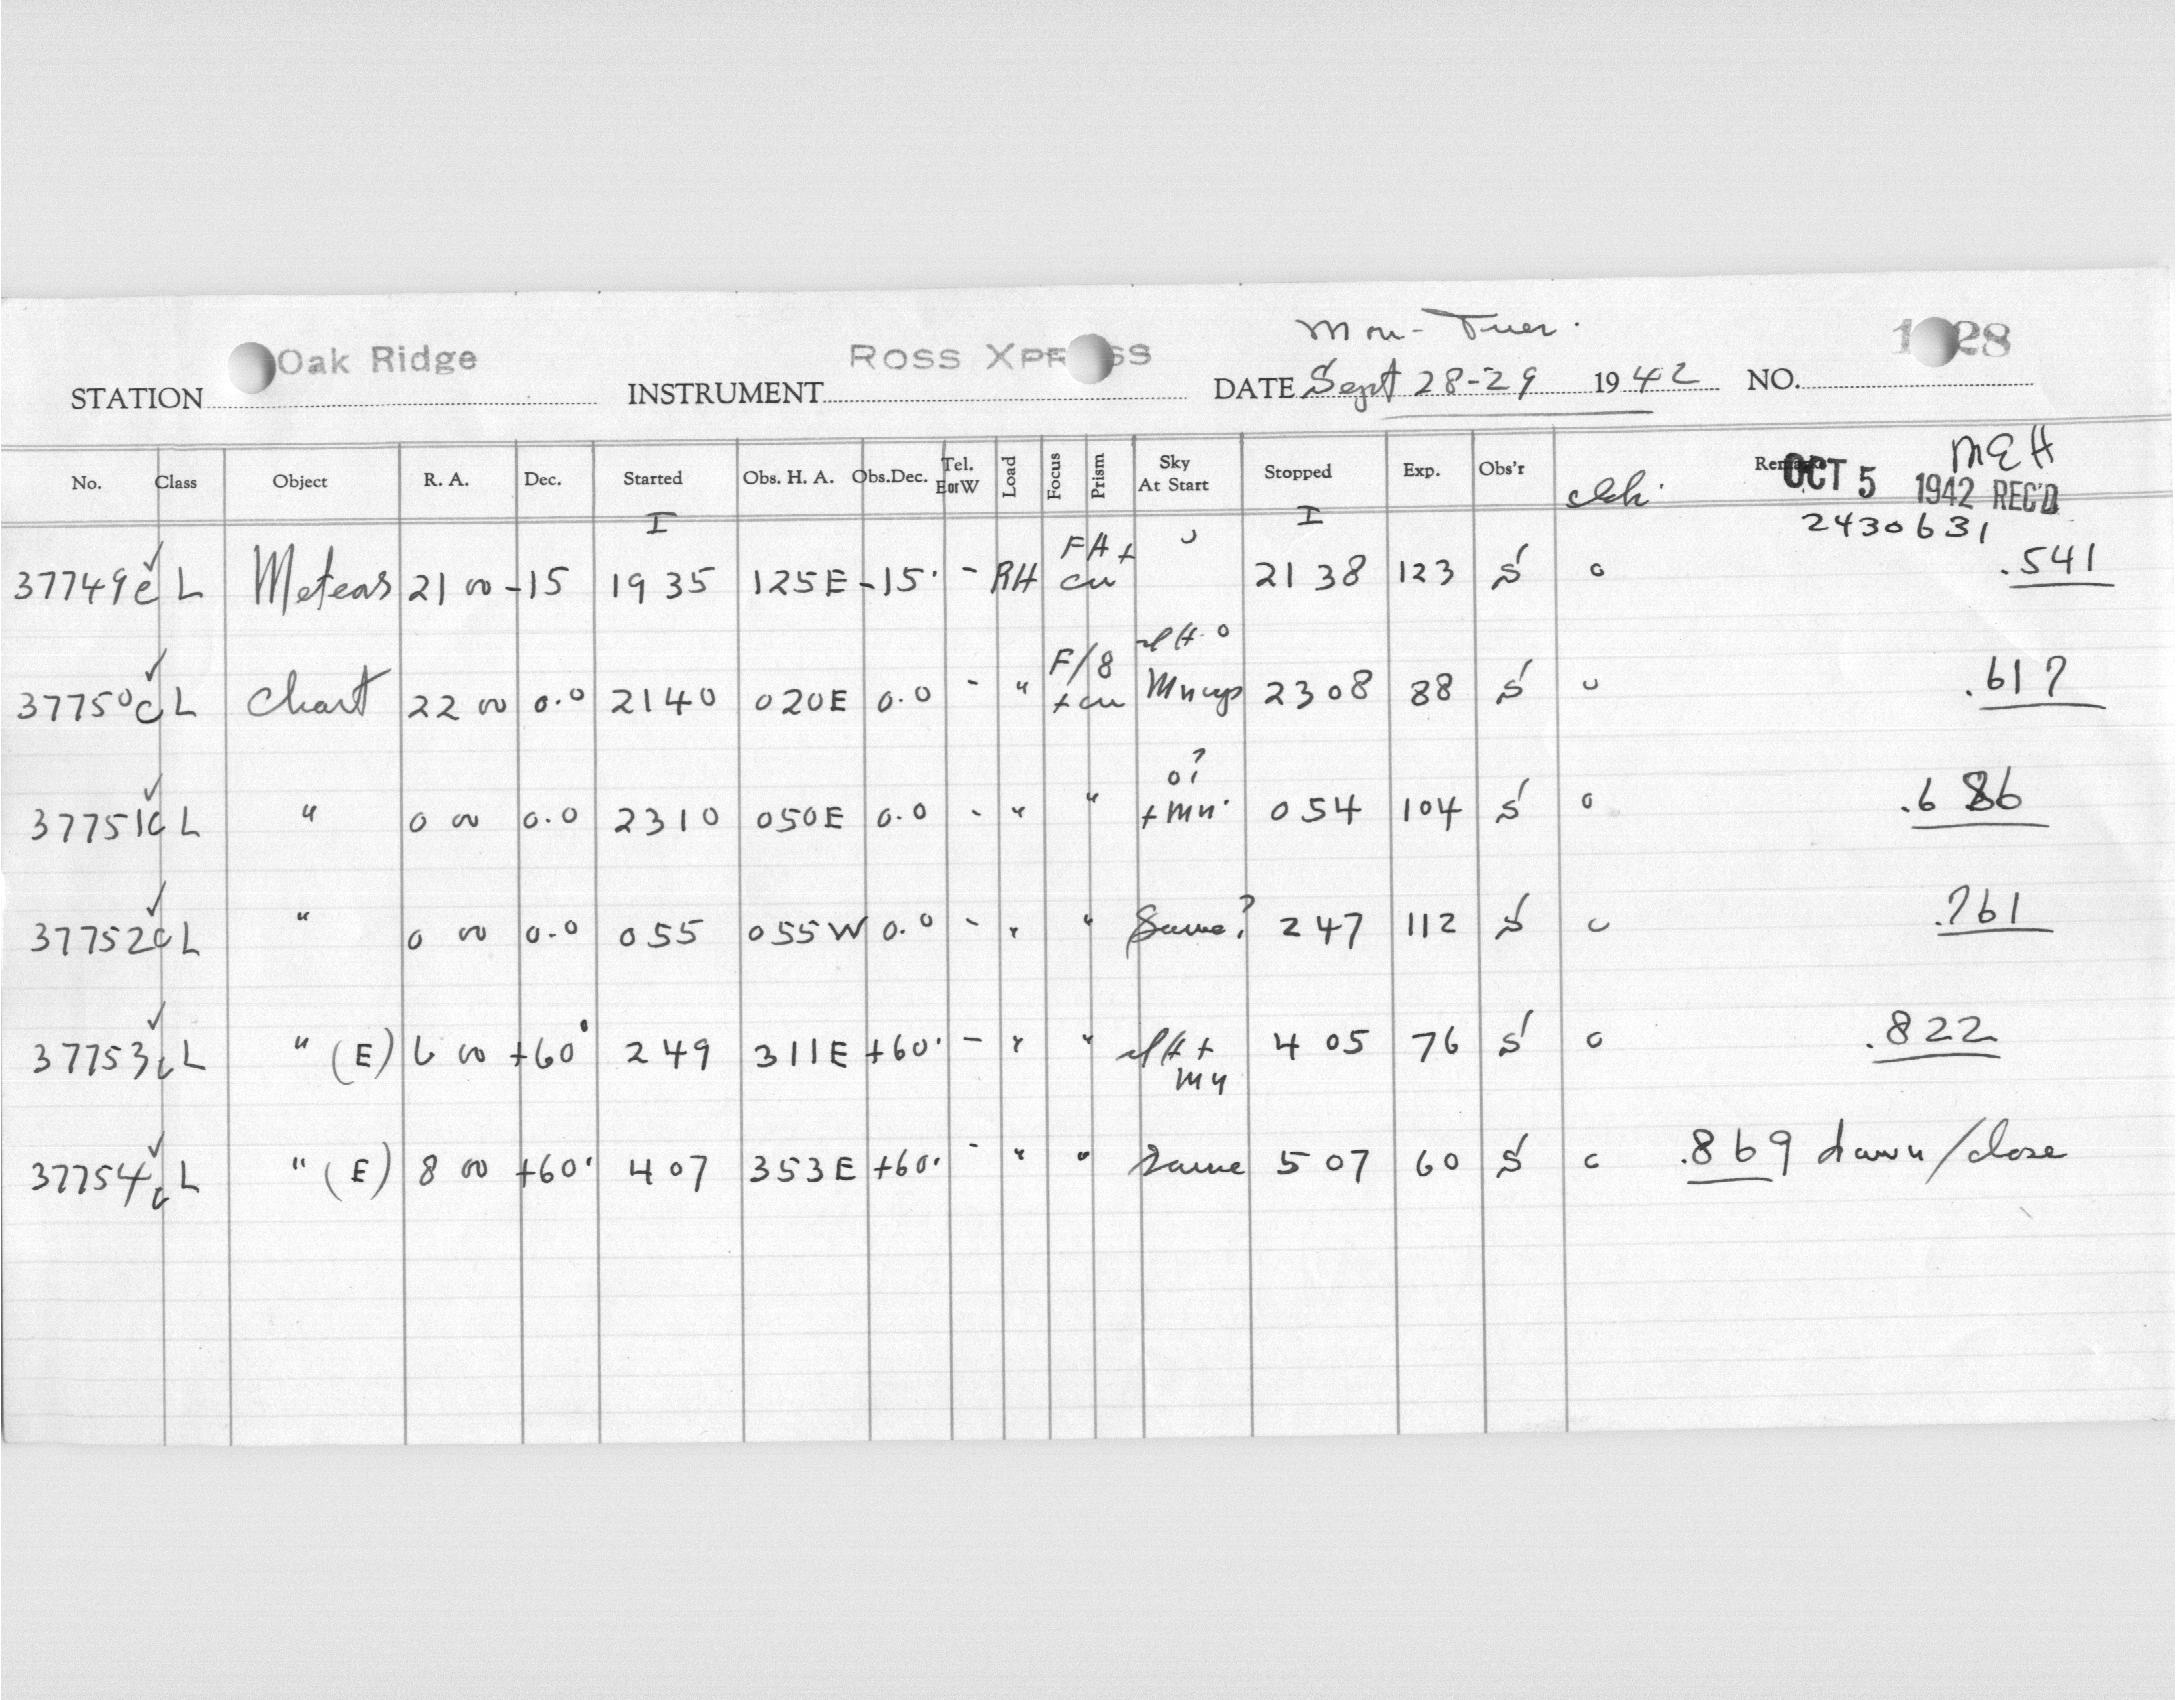 Mon - Tues.
STATION Oak Ridge INSTRUMENT ROSS XPRESS DATE Sept 28-29 1942 NO. 28
No. Class Object R. A. Dec. Started Obs. H. A. Obs.Dec. Tel. E or W Load Focus Prism Sky At Start Stopped Exp. Obs'r Remarks MEH
OCT 5 1942 REC'D
I I 2430631
37749c L Meteors 21 00 -15 19 35 125E -15° - RH FA + cu 21 38 123 S o .541
37750c L Chart 22 00 0.0 21 40 020E 0.0 - " F/8 + cu 23 08 88 S .617
37751c L " 0 00 0.0 23 10 050E 0.0 - " " o? + Mn. 0 54 104 S o .686
37752c L " 0 00 0.0 0 55 055W 0.0 - " " Same? 2 47 112 S .761
37753c L " (E) 6 00 +60° 2 49 311E +60° - " " + Mn 4 05 76 S o .822
37754c L " (E) 8 00 +60° 4 07 353E +60° - " " Same 5 07 60 S .869 dawn/close